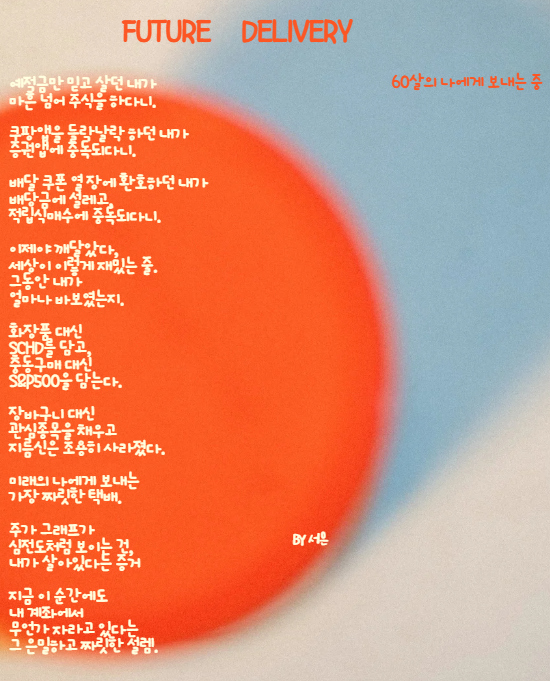 FUTURE DELIVERY
60살의 나에게 보내는 중
예적금만 믿고 살던 내가
마흔 넘어 주식을 하다니.
쿠팡앱을 들락날락 하던 내가
증권앱에 중독되다니.
배달 쿠폰 열 장에 환호하던 내가
배당금에 설레고,
적립식매수에 중독되다니.
이제야 깨달았다,
세상이 이렇게 재밌는 줄.
그동안 내가
얼마나 바보였는지.
화장품 대신
SCHD를 담고,
충동구매 대신
S&P500을 담는다.
장바구니 대신
관심종목을 채우고
지름신은 조용히 사라졌다.
미래의 나에게 보내는
가장 짜릿한 택배.
주가 그래프가
심전도처럼 보이는 건,
내가 살아있다는 증거
지금 이 순간에도
내 계좌에서
무언가 자라고 있다는
그 은밀하고 짜릿한 설렘.
BY 서른